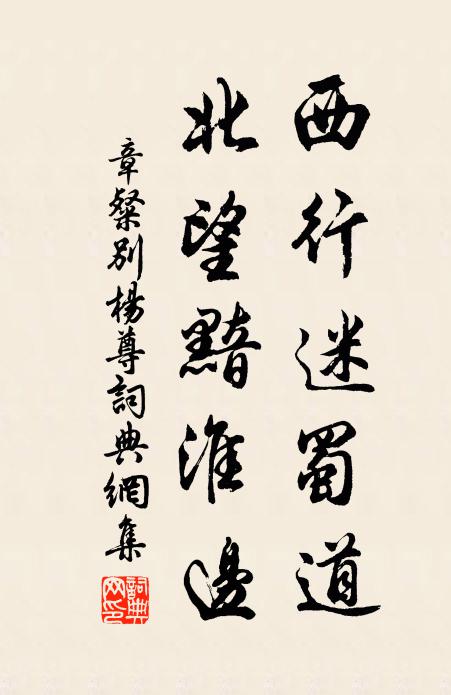 西行迷蜀道
北望黯淮邊
章粲別楊尊詞典網集
詞典网印